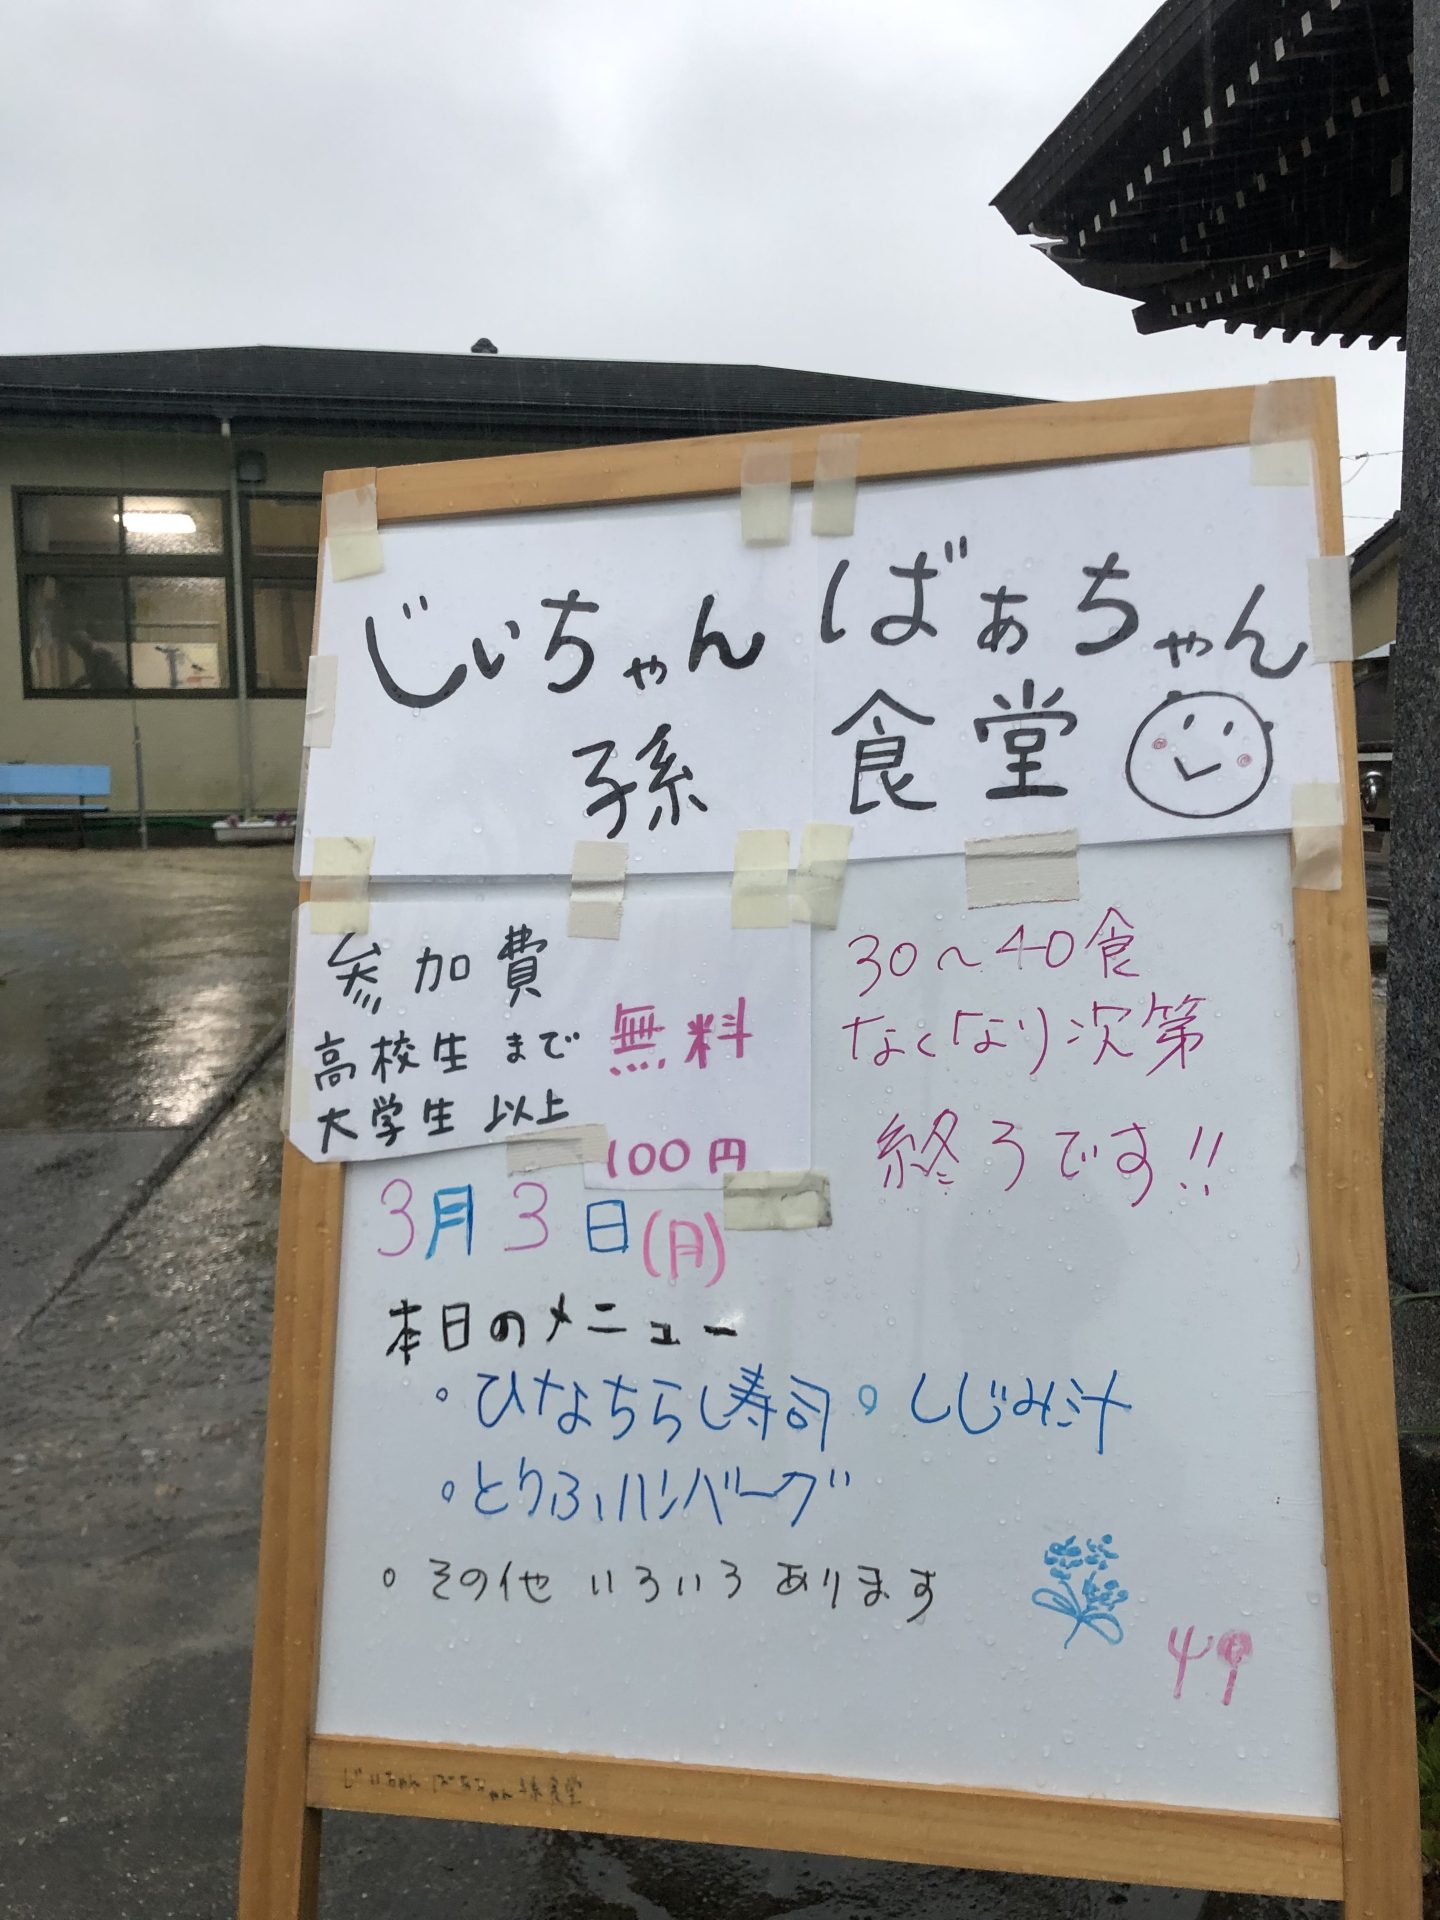 じぃちゃん ばぁちゃん
孫 食堂
参加費
高校生 まで 無料
大学生 以上 100円
30〜40食
なくなり次第
終了です!!
3月3日(月)
本日のメニュー
・ひなちらし寿司 ・しじみ汁
・とりふハンバーグ
・その他 いろいろ あります
49
じぃちゃん ばぁちゃん 孫食堂